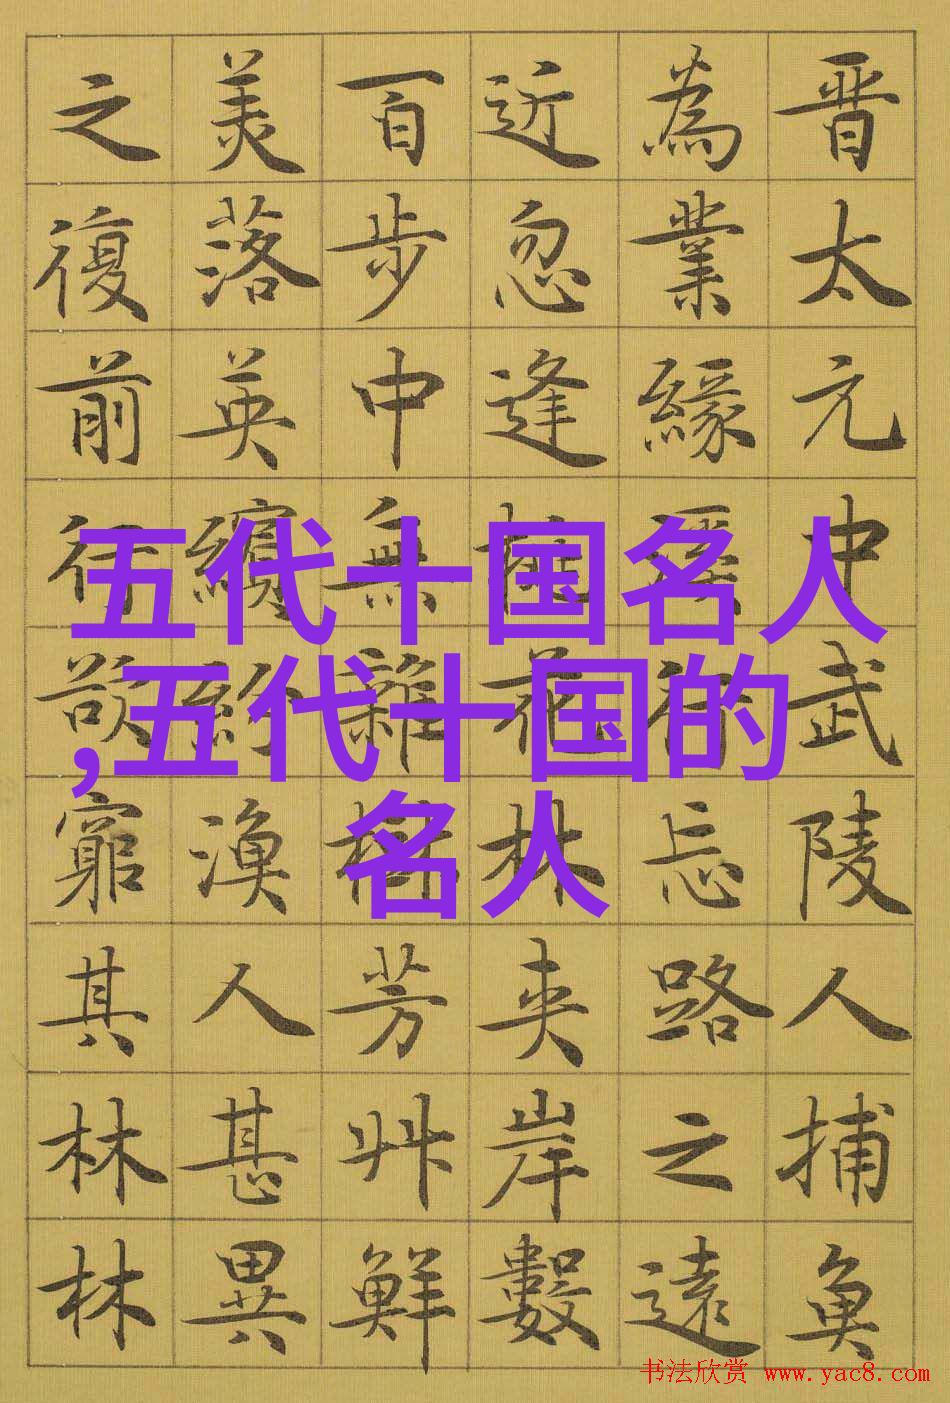 晋太元中武陵人捕魚
為業緣溪行忘路之遠
近忽逢桃花林夾岸數
百步中無雜樹芳艸鮮
美落英繽紛漁人甚異
之復前行欲窮其林林
五代十国名人
,五代十国的
名人
书法欣赏 www.yac8.com